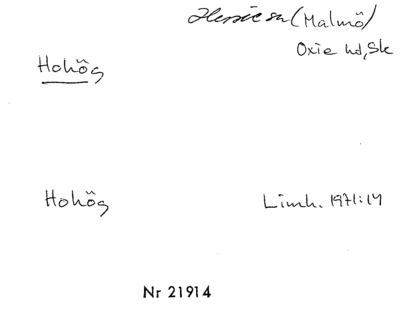 (Malmö)
Oxie hd, Sk
Hohög
Hohög Limh. 1971:14
Nr 21914